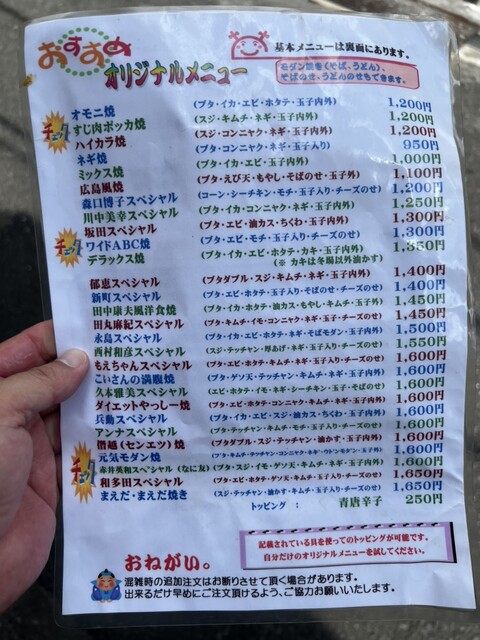 おすすめ
オリジナルメニュー
基本メニューは裏面にあります。
モダン焼き(そば、うどん)、
そばのせ、うどんのせもできます。
オモニ焼 (ブタ・イカ・エビ・ホタテ・玉子内外) 1,200円
チェック すじ肉ポッカ焼 (スジ・キムチ・ネギ・玉子内外) 1,200円
ハイカラ焼 (スジ・コンニャク・ネギ・玉子内外) 1,200円
ネギ焼 (ブタ・コンニャク・ネギ・玉子入り) 950円
ミックス焼 (ブタ・イカ・エビ・玉子内外) 1,000円
広島風焼 (ブタ・えび天・もやし・そばのせ・玉子外) 1,100円
森口博子スペシャル (コーン・シーチキン・モチ・玉子入り・チーズのせ) 1,200円
川中美幸スペシャル (ブタ・イカ・コンニャク・ネギ・玉子内外) 1,250円
坂田スペシャル (ブタ・エビ・油カス・ちくわ・玉子内外) 1,300円
チェック ワイドABC焼 (ブタ・エビ・モチ・玉子入り・チーズのせ) 1,300円
デラックス焼 (ブタ・イカ・エビ・ホタテ・カキ・玉子内外) 1,350円
(※ カキは冬場以外油かす)
郁恵スペシャル (ブタダブル・スジ・キムチ・ネギ・玉子内外) 1,400円
新町スペシャル (ブタ・エビ・ホタテ・玉子入り・そばのせ・チーズのせ) 1,400円
田中康夫風洋食焼 (ブタ・イカ・ホタテ・油カス・もやし・キムチ・玉子外) 1,450円
田丸麻紀スペシャル (ブタ・キムチ・イモ・コンニャク・ネギ・玉子入り・チーズのせ) 1,450円
永島スペシャル (ブタ・イカ・エビ・ホタテ・ネギ・そばモダン・玉子外) 1,500円
西村和彦スペシャル (スジ・テッチャン・厚あげ・ネギ・玉子入り・チーズのせ) 1,550円
もえちゃんスペシャル (ブタ・エビ・ホタテ・キムチ・ネギ・玉子入り・チーズのせ) 1,600円
こいさんの満腹焼 (ブタ・ゲソ天・テッチャン・キムチ・ネギ・玉子内外) 1,600円
久本雅美スペシャル (エビ・ホタテ・イモ・ネギ・シーチキン・玉子・そばのせ) 1,600円
ダイエットやっしー焼 (ブタ・エビ・ホタテ・コンニャク・キムチ・ネギ・玉子外) 1,600円
兵動スペシャル (ブタ・イカ・エビ・スジ・油カス・ちくわ・玉子内外) 1,600円
アンナスペシャル (ブタ・テッチャン・キムチ・モチ・玉子入り・チーズのせ) 1,600円
僭越(センエツ)焼 (ブタダブル・スジ・テッチャン・油かす・玉子内外) 1,600円
元気モダン焼 (ブタ・キムチ・テッチャン・コンニャク・ネギ・ウドンモダン・玉子外) 1,600円
チェック 赤井英和スペシャル(なに友) (ブタ・スジ・イモ・ゲソ天・キムチ・ネギ・玉子内外) 1,600円
和多田スペシャル (ブタ・エビ・ホタテ・ゲソ天・キムチ・玉子入り・チーズのせ) 1,650円
まえだ・まえだ焼き (スジ・テッチャン・油かす・キムチ・玉子入り・チーズのせ) 1,650円
トッピング : 青唐辛子 250円
記載されている具を使ってのトッピングが可能です。
自分だけのオリジナルメニューを試してください。
おねがい。
混雑時の追加注文はお断りさせて頂く場合があります。
出来るだけ早めにご注文頂けるよう、ご協力お願いいたします。